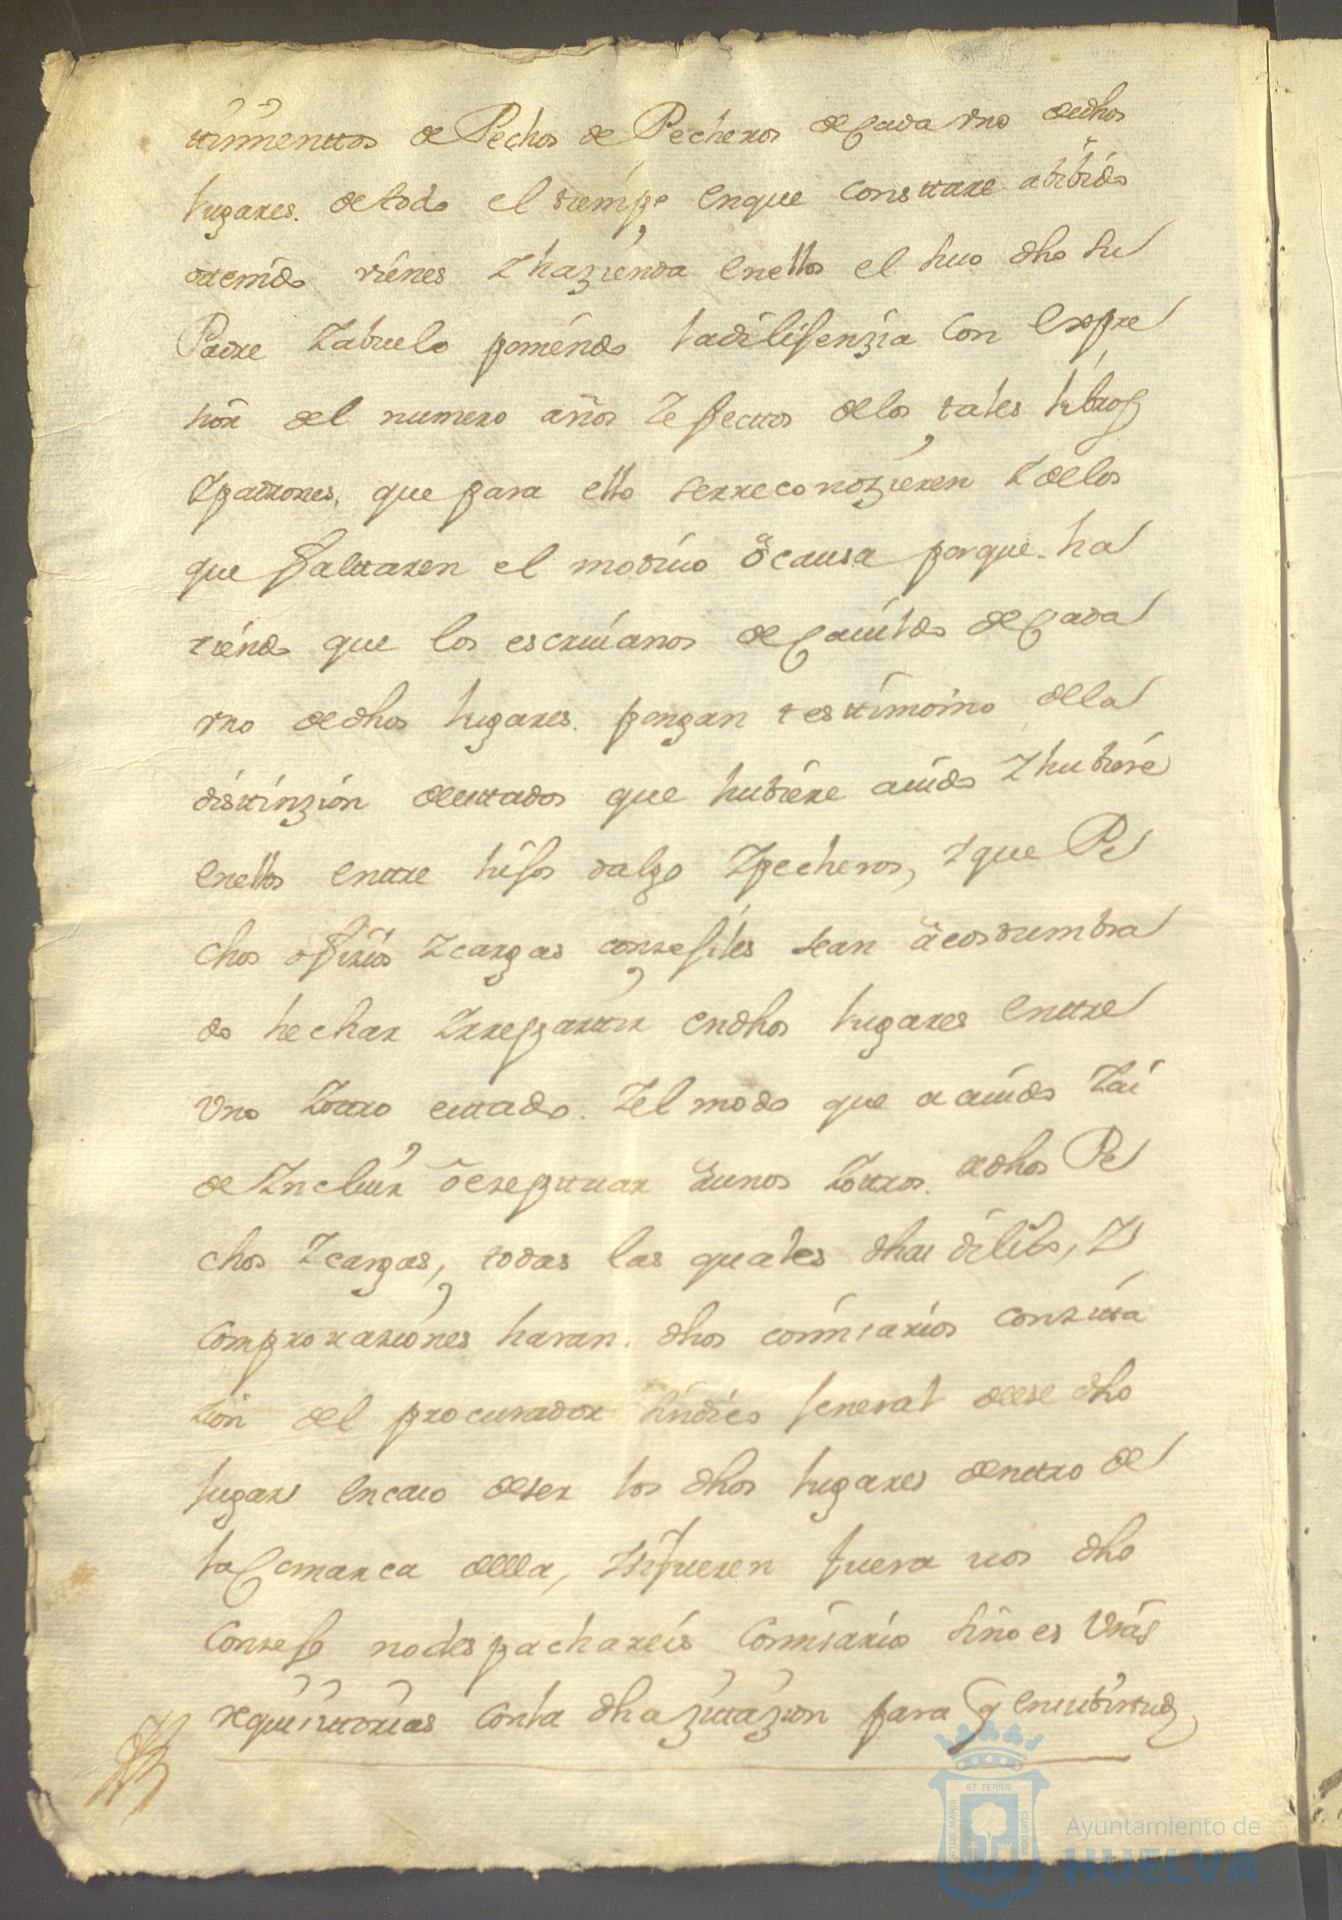 timienttos de Pechos de Pecheros de Cada vno dedhos
lugares. de todo el tiempo enque Consttare abibido
ottenido vienes Y hazienda enellos el suo dho su
Padre Y abuelo poniendo la dilijenzia Con expre
sion del numero años Y efecttos delos tales libros
Y padrones, que para ello serreconozieren Y delos
que faltaren el motiuo ô causa porque. ha
ziendo que los escriuanos de Cauildo de Cada
vno dedhos lugares. pongan testtimoino dela
disttinzion deesttados que hubiere auido Y hubiere
enellos enttre hijos dalgo Y pecheros, Y que Pe
chos ofizios Y cargas conzejiles sean acostumbra
do hechar Y rrepartir endhos lugares enttre
Vno Y ottro esttado. Y el modo que a auido Y ai
de Yncluir o exepttuar Y unos Y ottros. adhos Pe
chos Y cargas, todas las quales dhas dilixs, Y
comprouaziones haran. dhos comisarios conzitta
zion del procurador sindico jeneral dese dho
lugar en caso deser los dhos lugares denttro de
la Comarca della, Y si fueren fuera uos dho
Conzejo no despachareis Comisario sino es Vras
requisittorias Conla dha zittazion para q en uirtud
ET TERRÆ
PORTUS MARIS
CUSTODIA
Ayuntamiento de
HUELVA